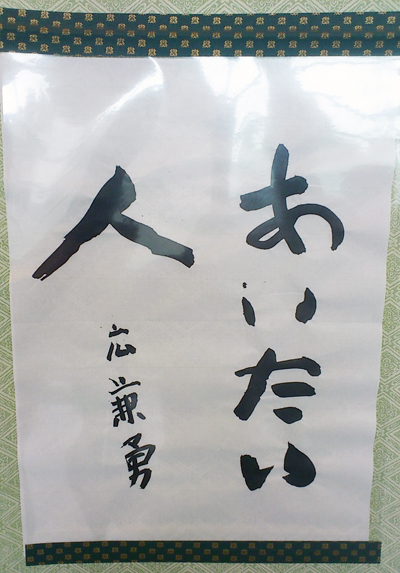 あいたい
人
広兼勇